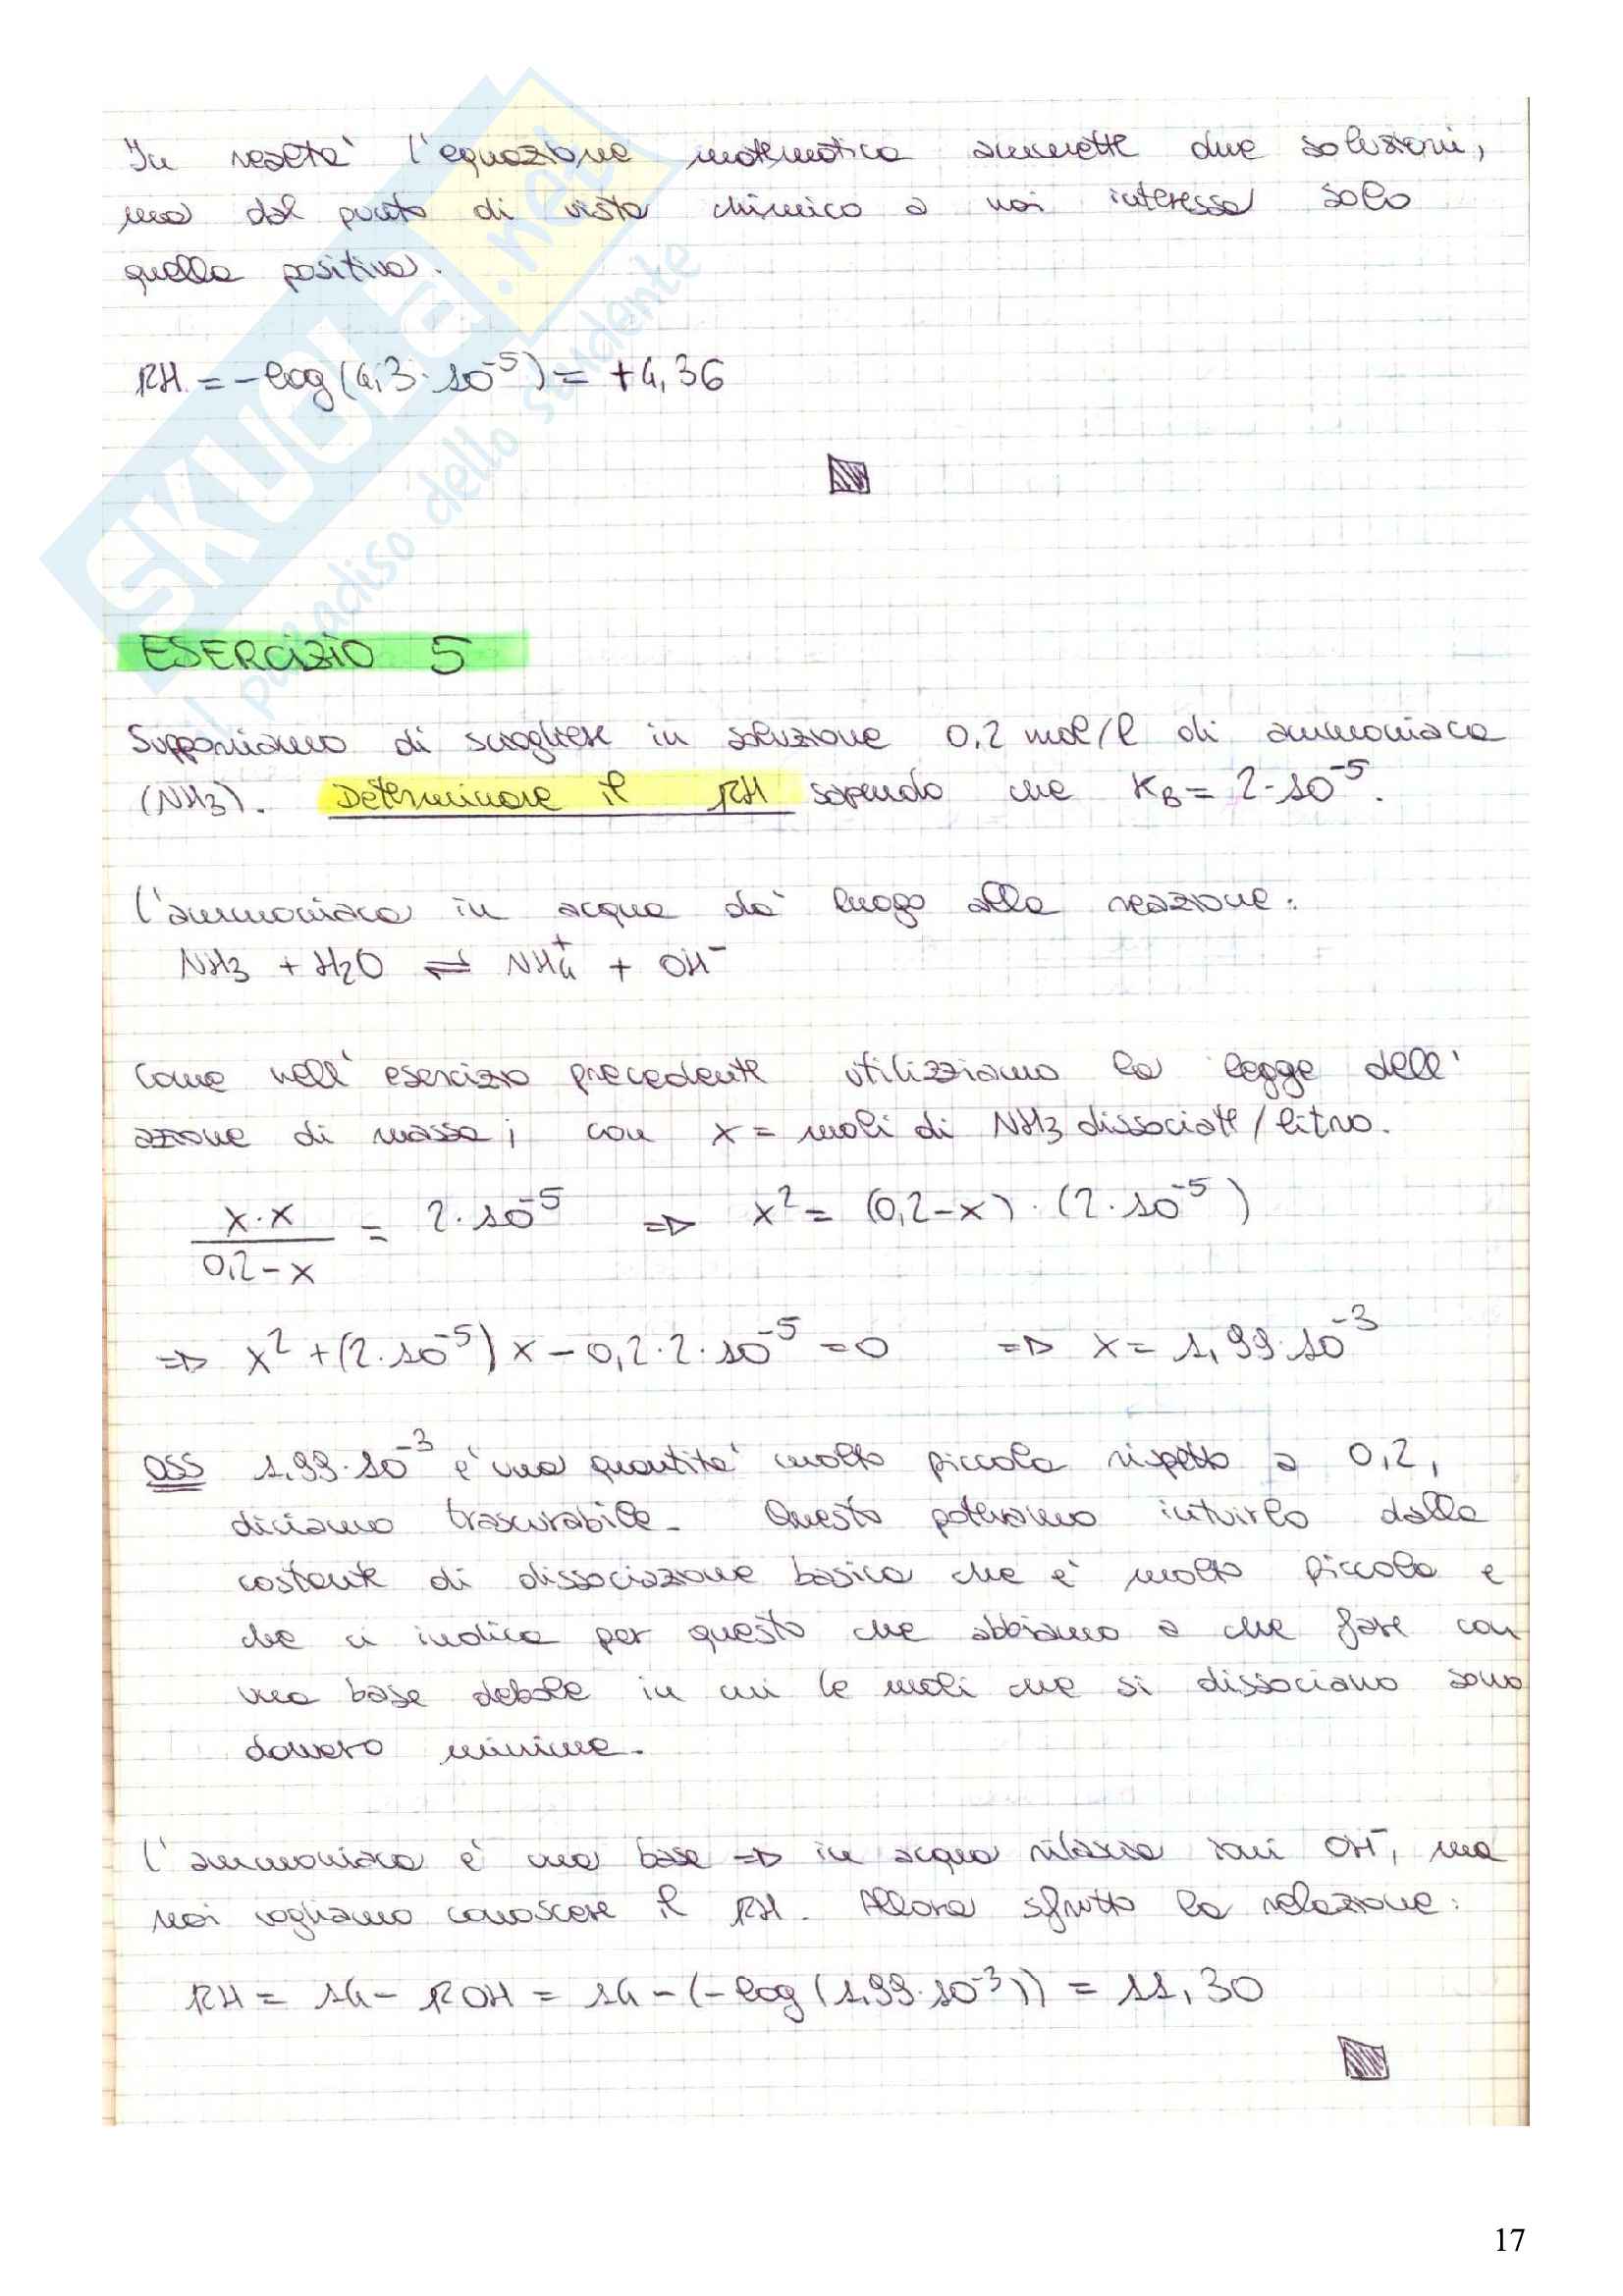 In realtà l'equazione matematica ammette due soluzioni,
ma dal punto di vista chimico a noi interessa solo
quella positiva.
PH = -log(4,3·10⁻⁵) = +4,36
SKUOLA.net
il paradiso dello studente
ESERCIZIO 5
Supponiamo di sciogliere in soluzione 0,2 mol/l di ammoniaca
(NH3). Determinare il PH sapendo che KB = 2·10⁻⁵.
L'ammoniaca in acqua dà luogo alla reazione:
NH3 + H2O ⇌ NH4⁺ + OH⁻
Come nell'esercizio precedente utilizziamo la legge dell'
azione di massa; con x = moli di NH3 dissociate/litro.
x·x / (0,2-x) = 2·10⁻⁵ ⇒ x² = (0,2-x)·(2·10⁻⁵)
⇒ x² + (2·10⁻⁵)x - 0,2·2·10⁻⁵ = 0 ⇒ x = 1,99·10⁻³
OSS 1,99·10⁻³ è una quantità molto piccola rispetto a 0,2,
diciamo trascurabile. Questo potevamo intuirlo dalla
costante di dissociazione basica che è molto piccola e
che ci indica per questo che abbiamo a che fare con
una base debole in cui le moli che si dissociano sono
davvero minime.
L'ammoniaca è una base ⇒ in acqua rilascia ioni OH⁻, ma
noi vogliamo conoscere il PH. Allora sfrutto la relazione:
PH = 14 - POH = 14 - (-log(1,99·10⁻³)) = 11,30
17